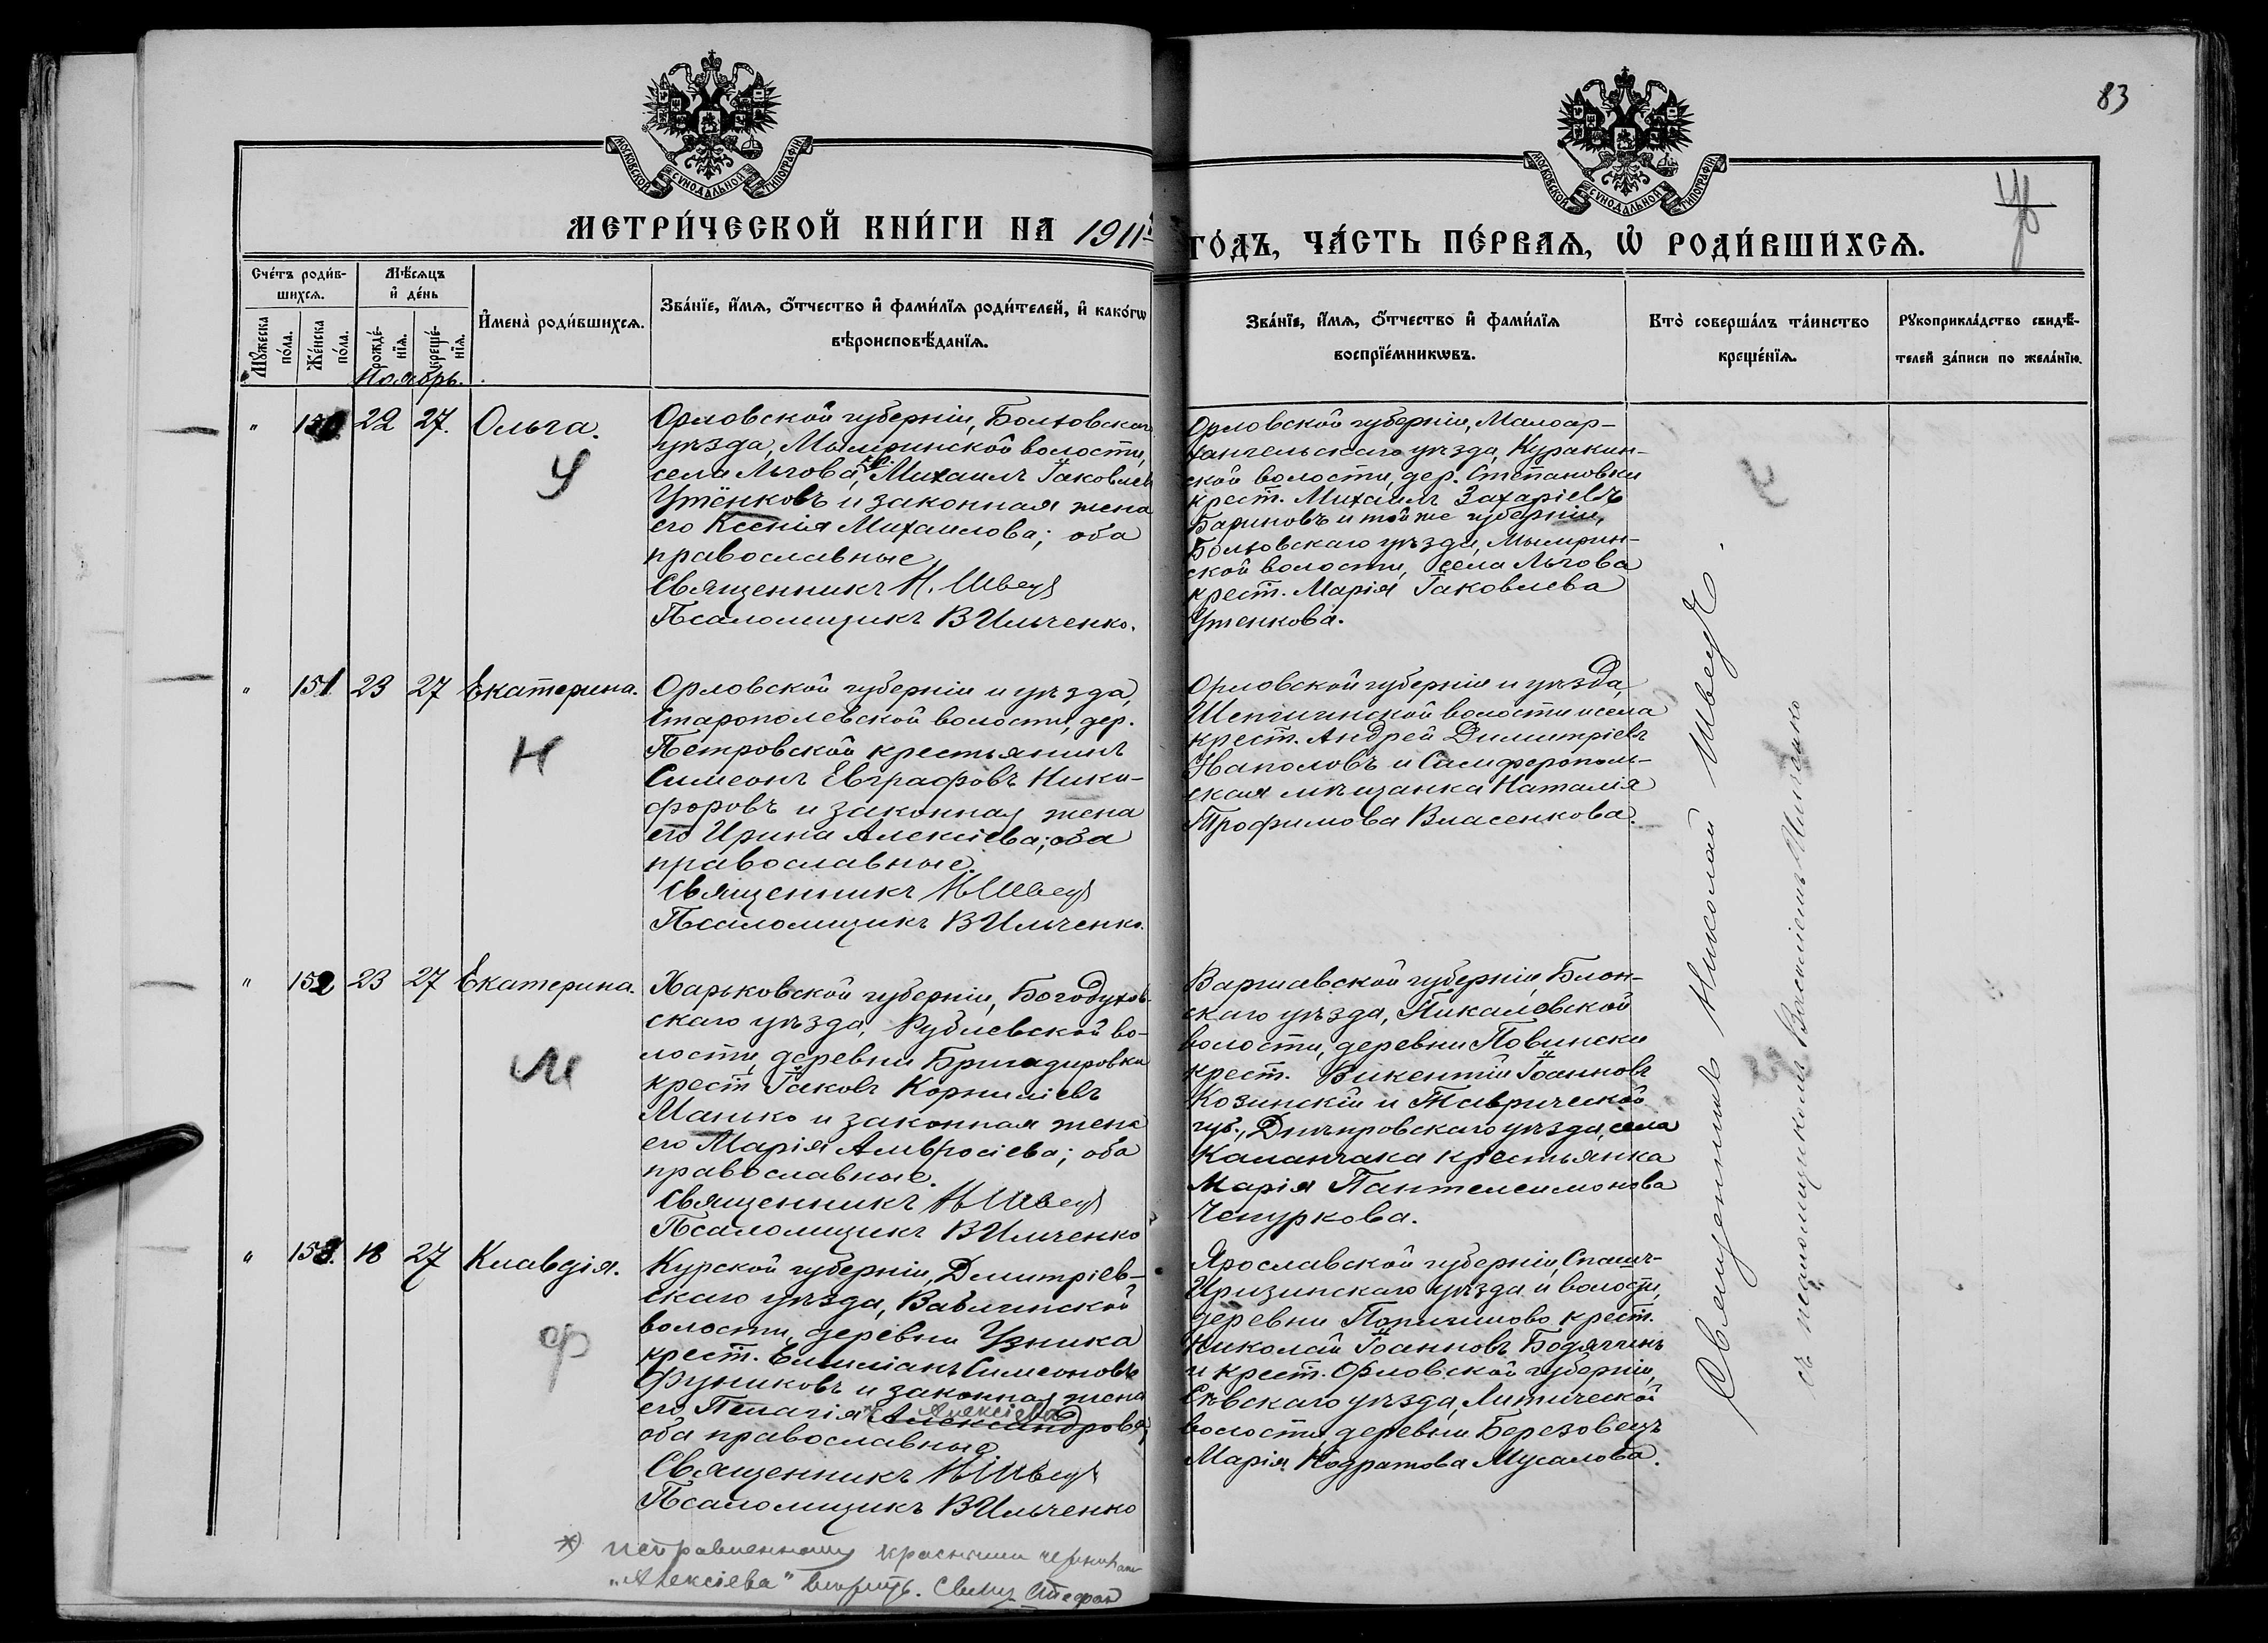 83
МОСКОВСКОЙ СѴНОДАЛЬНОЙ ТИПОГРАФІИ
МОСКОВСКОЙ СѴНОДАЛЬНОЙ ТИПОГРАФІИ
МЕТРИ́ЧЕСКОЙ КНИ́ГИ НА 1911й
ГО́ДЪ, ЧА́СТЬ ПЕ́РВАѦ, Ѽ РОДИ́ВШИХСѦ.
Сче́тъ роди́в-
шихсѧ.
Мѣ́сѧцъ
и҆ де́нь
Мꙋ́жеска
по́ла.
Же́нска
по́ла.
рожде́-
нїѧ.
креще́-
нїѧ.
И҆мена̀ роди́вшихсѧ.
Зва́нїе, и҆́мѧ, ѻ҆́тчество и҆ фами́лїѧ роди́телей, и҆ како́гѡ
вѣроисповѣ́данїѧ.
Зва́нїе, и҆́мѧ, ѻ҆́тчество и҆ фами́лїѧ
воспрїе́мникѡвъ.
Кто̀ соверша́лъ та́инство
креще́нїѧ.
Рꙋкоприкла́дство свидѣ́-
телей за́писи по жела́нїю.
Ноябрь.
" 150 22 27. Ольга.
У
Орловской губерніи, Болховскаго
уѣзда, Мымринской волости,
села Льгова, кр. Михаилъ Іаковлевъ
Утёнковъ и законная жена
его Ксенія Михаилова; оба
православные
Священникъ Н. Швецъ
Псаломщикъ В Ильченко.
Орловской губерніи, Малоар-
хангельскаго уѣзда, Куракин-
ской волости, дер. Степановки
крест. Михаилъ Захаріевъ
Бариновъ и той же губерніи,
Болховскаго уѣзда, Мымрин-
ской волости, села Льгова
крест. Марія Іаковлева
Утенкова.
" 151. 23 27 Екатерина.
Н
Орловской губерніи и уѣзда,
Старополевской волости, дер.
Петровской крестьянинъ
Симеонъ Евграфовъ Ники-
форовъ и законная жена
его Ирина Алексіева; оба
православные.
Священникъ Н Швецъ
Псаломщикъ В Ильченко.
Орловской губерніи и уѣзда,
волости и села
крест. Андрей Димитріевъ
Наполовъ и Симферополь-
ская мѣщанка Наталія
Трофимова Власенкова.
" 152 23 27 Екатерина.
М
Харьковской губерніи, Богодухов-
скаго уѣзда, Рублевской во-
лости, деревни Бригадировки
крест. Іаковъ Корниліевъ
Манько и законная жена
его Марія Амвросіева; оба
православные.
Священникъ Н Швецъ
Псаломщикъ В Ильченко
Варшавской губерніи, Блон-
скаго уѣзда,
волости, деревни Повински
крест. Викентій Іоанновъ
Козинскій и Таврической
губ., Днѣпровскаго уѣзда, села
Каланчака крестьянка
Марія Пантелеимонова
Чепуркова.
" 153. 18 27 Клавдія.
Ф
Курской губерніи, Димитріев-
скаго уѣзда,
волости, деревни Узника
крест. Емиліанъ Симеоновъ
Фуниковъ и законная жена
его Пелагія *) Александрова; Алексіева
оба православные
Священникъ Н Швецъ
Псаломщикъ В Ильченко
Ярославской губерніи,
уѣзда и волости,
деревни крест.
Николай Іоанновъ Бодягинъ
и крест. Орловской губерніи,
Сѣвскаго уѣзда, Литической
волости деревни Березовецъ
Марія Кодратова Мусалова.
Священникъ Николай Швецъ.
съ псаломщикомъ Василіемъ Ильченко
*) исправленному красными чернилами
„Алексіева" вѣрить. Свящ. Стефан